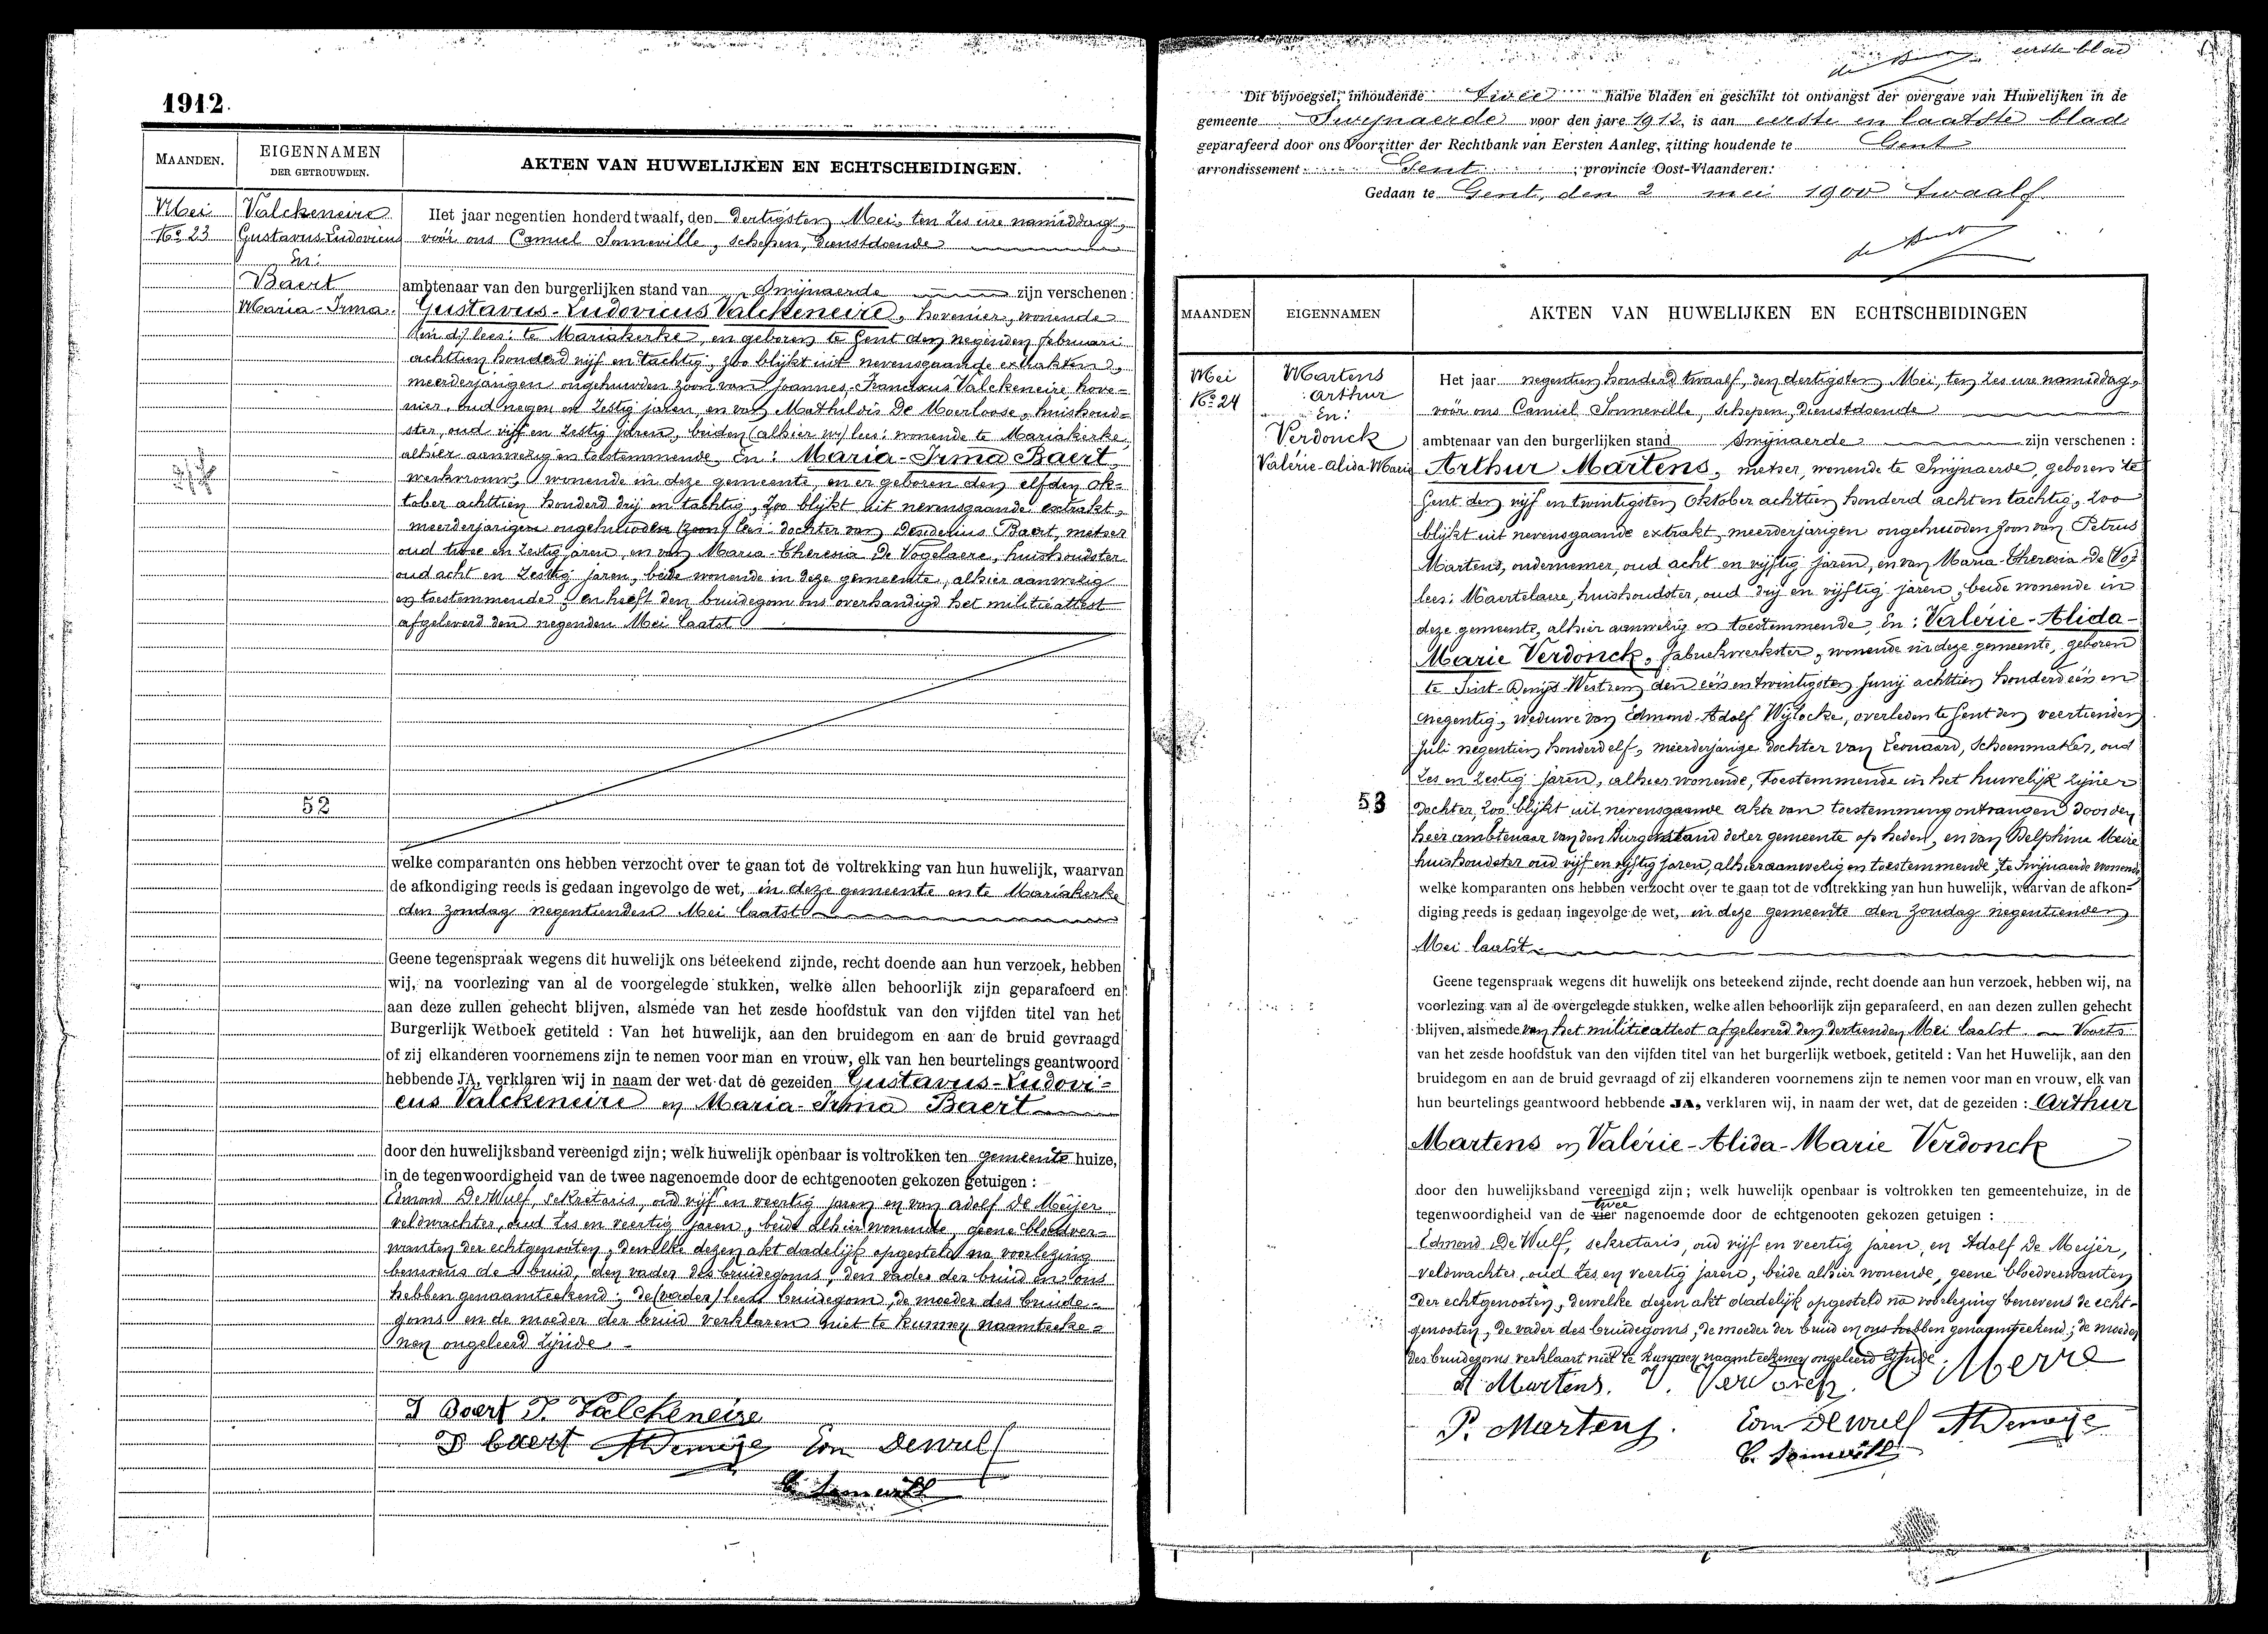 1912.
MAANDEN.
EIGENNAMEN
DER GETROUWDEN.
AKTEN VAN HUWELIJKEN EN ECHTSCHEIDINGEN.
Mei
No 23
Valckeneire
Gustavus-Ludovicus
En:
Baert
Maria-Irma.
52
Het jaar negentien honderd twaalf, den dertigsten Mei, ten zes ure namiddag,
voór ons Camiel Sonneville, schepen, dienstdoende
ambtenaar van den burgerlijken stand van Swijnaerde zijn verschenen:
Gustavus-Ludovicus Valckeneire, hovenier, wonende
lees: te Mariakerke, en geboren te Gent den negenden februari
achttien honderd vijf en tachtig, zoo blijkt uit nevensgaande extrakten,
meerderjarigen ongehuwden zoon van Joannes-Franciscus Valckeneire, hove-
nier, oud negen en zestig jaren, en van Mathildis De Moerloose, huishoud-
ster, oud vijf en zestig jaren, beiden (alhier w) lees: wonende te Mariakerke,
alhier aanwezig en toestemmende, En: Maria-Irma Baert,
werkvrouw, wonende in deze gemeente, en er geboren den elfden Ok-
tober achttien honderd drij en tachtig, zoo blijkt uit nevensgaande extrakt,
meerderjarigen ongehuwden (zoon) lees: dochter van Desiderius Baert, metser
oud twee en zestig jaren, en van Maria-Theresia De Vogelaere, huishoudster
oud acht en zestig jaren, beide wonende in deze gemeente, alhier aanwezig
en toestemmende, en heeft den bruidegom ons overhandigd het militieattest
afgeleverd den negenden Mei laatst
welke comparanten ons hebben verzocht over te gaan tot de voltrekking van hun huwelijk, waarvan
de afkondiging reeds is gedaan ingevolge de wet, in deze gemeente en te Mariakerke
den zondag negentienden Mei laatst
Geene tegenspraak wegens dit huwelijk ons beteekend zijnde, recht doende aan hun verzoek, hebben
wij, na voorlezing van al de voorgelegde stukken, welke allen behoorlijk zijn geparafeerd en
aan deze zullen gehecht blijven, alsmede van het zesde hoofdstuk van den vijfden titel van het
Burgerlijk Wetboek getiteld : Van het huwelijk, aan den bruidegom en aan de bruid gevraagd
of zij elkanderen voornemens zijn te nemen voor man en vrouw, elk van hen beurtelings geantwoord
hebbende JA, verklaren wij in naam der wet dat de gezeiden Gustavus-Ludovi-
cus Valckeneire en Maria-Irma Baert
door den huwelijksband vereenigd zijn; welk huwelijk openbaar is voltrokken ten gemeente huize,
in de tegenwoordigheid van de twee nagenoemde door de echtgenooten gekozen getuigen :
Edmond De Wulf, sekretaris, oud vijf en veertig jaren en van Adolf De Meijer
veldwachter, oud zes en veertig jaren, beide alhier wonende, geene bloedver-
wanten der echtgenooten, dewelke dezen akt dadelijk opgesteld na voorlezing
benevens de bruid, den vader des bruidegoms, den vader der bruid en ons
hebben genaamteekend; de (vader) lees: bruidegom, de moeder des bruide-
goms en de moeder der bruid verklaren niet te kunnen naamteeke-
nen ongeleerd zijnde.
I Baert J. Valckeneire
D baert ADemeije Edm Dewulf
C. Sonneville
eerste blad
Dit bijvoegsel, inhoudende twee halve bladen en geschikt tot ontvangst der overgave van Huwelijken in de
gemeente Swijnaerde voor den jare 1912, is aan eerste en laatste blad
geparafeerd door ons Voorzitter der Rechtbank van Eersten Aanleg, zitting houdende te Gent
arrondissement Gent ; provincie Oost-Vlaanderen.
Gedaan te Gent, den 2 mei 1900 twaalf
MAANDEN
EIGENNAMEN
AKTEN VAN HUWELIJKEN EN ECHTSCHEIDINGEN
Mei
No 24
Martens
Arthur
En:
Verdonck
Valérie-Alida-Marie
53
Het jaar negentien honderd twaalf, den dertigsten Mei, ten zes ure namiddag,
voór ons Camiel Sonneville, schepen, dienstdoende
ambtenaar van den burgerlijken stand Swijnaerde zijn verschenen :
Arthur Martens, metser, wonende te Swijnaerde, geboren te
Gent den vijf en twintigsten Oktober achttien honderd acht en tachtig, zoo
blijkt uit nevensgaande extrakt, meerderjarigen ongehuwden zoon van Petrus
Martens, ondernemer, oud acht en vijftig jaren, en van Maria-Theresia De (Vo)
lees: Maertelaere, huishoudster, oud drij en vijftig jaren, beide wonende in
deze gemeente, alhier aanwezig en toestemmende, En: Valérie-Alida-
Marie Verdonck, fabriekwerkster, wonende in deze gemeente, geboren
te Sint-Denijs-Westrem den eén en twintigsten Junij achttien honderd eén en
negentig, weduwe van Edmond-Adolf Wijlocke, overleden te Gent den veertienden
Juli negentien honderd elf, meerderjarige dochter van Leonard, schoenmaker, oud
zes en zestig jaren, alhier wonende, toestemmende in het huwelijk zijner
dochter, zoo blijkt uit nevensgaande akte van toestemming ontvangen door den
heer ambtenaar van den Burgerstand dezer gemeente op heden, en van Delphina Meire
huishoudster oud vijf en vijftig jaren, alhier aanwezig en toestemmende, te Swijnaerde wonende
welke komparanten ons hebben verzocht over te gaan tot de voltrekking van hun huwelijk, waarvan de afkon-
diging reeds is gedaan ingevolge de wet, in deze gemeente den zondag negentienden
Mei laatst
Geene tegenspraak wegens dit huwelijk ons beteekend zijnde, recht doende aan hun verzoek, hebben wij, na
voorlezing van al de overgelegde stukken, welke allen behoorlijk zijn geparafeerd, en aan dezen zullen gehecht
blijven, alsmede van het militieattest afgeleverd den dertienden Mei laatst. Voorts
van het zesde hoofdstuk van den vijfden titel van het burgerlijk wetboek, getiteld : Van het Huwelijk, aan den
bruidegom en aan de bruid gevraagd of zij elkanderen voornemens zijn te nemen voor man en vrouw, elk van
hun beurtelings geantwoord hebbende JA, verklaren wij, in naam der wet, dat de gezeiden : Arthur
Martens en Valérie-Alida-Marie Verdonck
door den huwelijksband vereenigd zijn ; welk huwelijk openbaar is voltrokken ten gemeentehuize, in de
twee
tegenwoordigheid van de vier nagenoemde door de echtgenooten gekozen getuigen :
Edmond De Wulf, sekretaris, oud vijf en veertig jaren, en Adolf De Meijer,
veldwachter, oud zes en veertig jaren, beide alhier wonende, geene bloedverwanten
der echtgenooten, dewelke dezen akt dadelijk opgesteld na voorlezing benevens de echt-
genooten, de vader des bruidegoms, de moeder der bruid en ons hebben genaamteekend; de moeder
des bruidegoms verklaart niet te kunnen naamteekenen ongeleerd zijnde.
A Martens. V. Verdonck. Merre
P. Martens. Edm Dewulf ADemeije
C. Sonneville